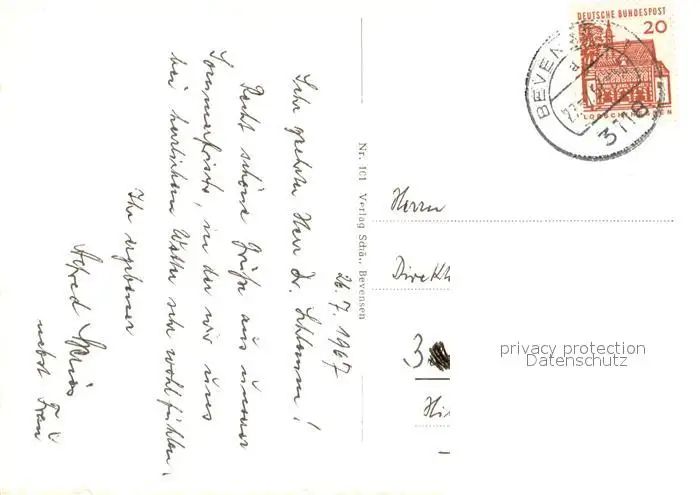 26.7.1967
Sehr geehrter Herr Dr. Schlomm!
Recht schöne Grüße aus unserer
Sommerfrische, in der wir uns
bei herrlichem Wetter sehr wohl fühlen.
Ihr ergebener
Alfred
nebst Frau
Nr. 101 Verlag Schä., Bevensen
DEUTSCHE BUNDESPOST
20
BEVEN
3118
Herrn
Direkt
3
Hi
privacy protection
Datenschutz